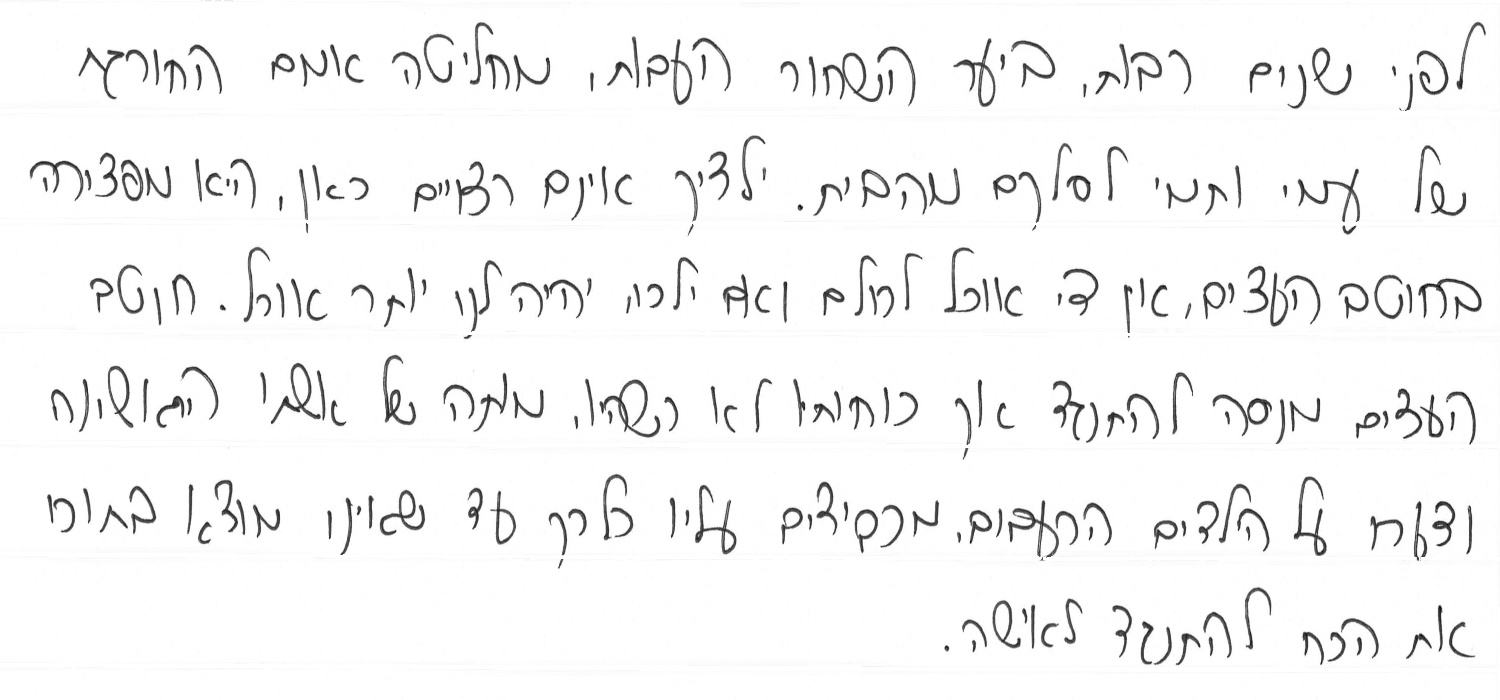 לפני שנים רבות, ביער השחור העבות, מחליטה אמם החורגת
של עמי ותמי לסלקם מהבית. ילדיך אינם רצויים כאן, היא מפצירה
בחוטב העצים, אין די אוכל לכולם ואם ילכו, יהיה לנו יותר אוכל. חוטב
העצים מנסה להתנגד אך כוחותיו לא השהיו, מותה של אשתו הראשונה
ודעת על הלדים הרעבום, מכבידים עליו כל כך עד שאינו מוצא בתוכו
את הכח להתנגד לאישה.